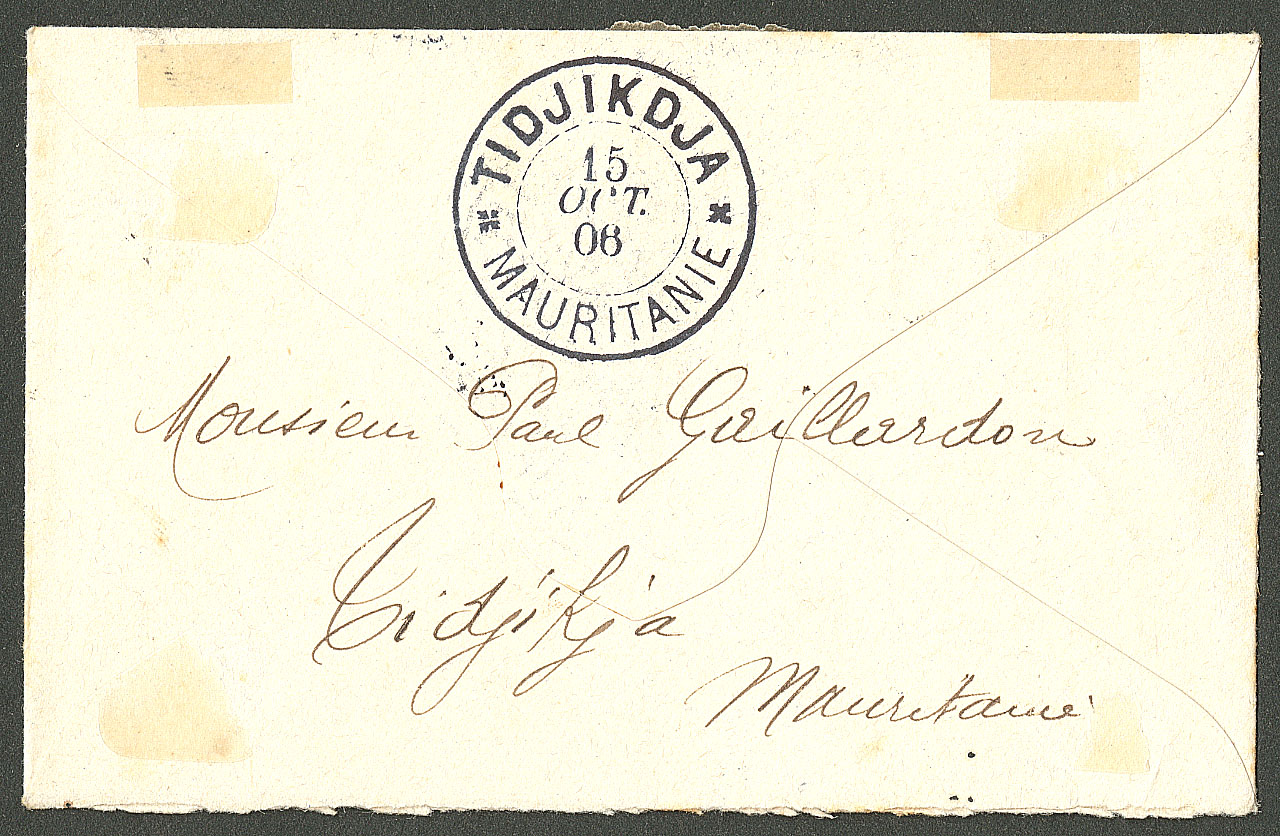 TIDJIKDJA
15
OCT.
06
* MAURITANIE *
Monsieur Paul Gaillardon
Tidjikja
Mauritanie